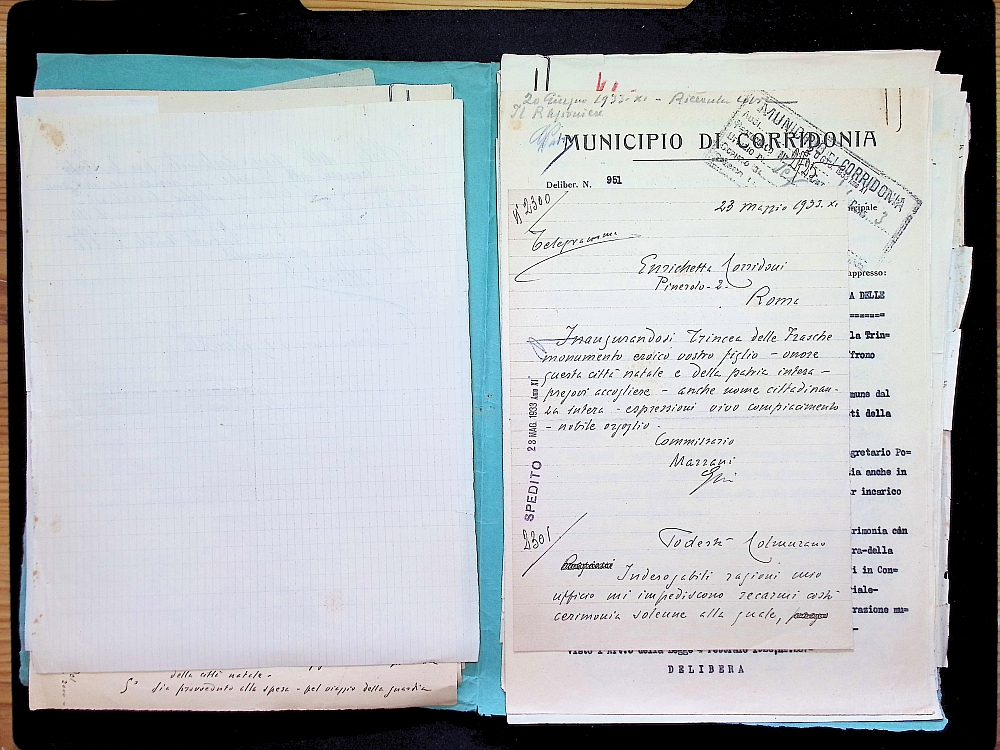 della città natale -
5° Sia provveduto alla spesa - pel viaggio della guardia
20 Giugno 1933-XI - Ricevuta
Il Ragioniere
MUNICIPIO DI CORRIDONIA
MUNICIPIO DI CORRIDONIA
Deliber. N. 951
N° 2300
23 Maggio 1933. XI
Telegramma
Enrichetta Corridoni
Pinerolo - 2 -
Roma
Inaugurandosi Trincea delle Frasche
monumento eroico vostro figlio - onore
questa città natale e della patria intera -
pregovi accogliere - anche nome cittadinan-
za intera - espressioni vivo compiacimento
- nobile orgoglio.
Commissario
Marzani
SPEDITO 23 MAG. 1933 Anno XI
2301
Podestà Colmurano
Inderogabili ragioni mio
ufficio mi impediscono recarmi costì
cerimonia solenne alla quale,
cipale
appresso:
A DELLE
=======
la Trin=
ffrono
mune dal
ti della
gretario Po=
ia anche in
r incarico
rimonia con
ra-della
i in Con=
iale-
razione mu=
DELIBERA